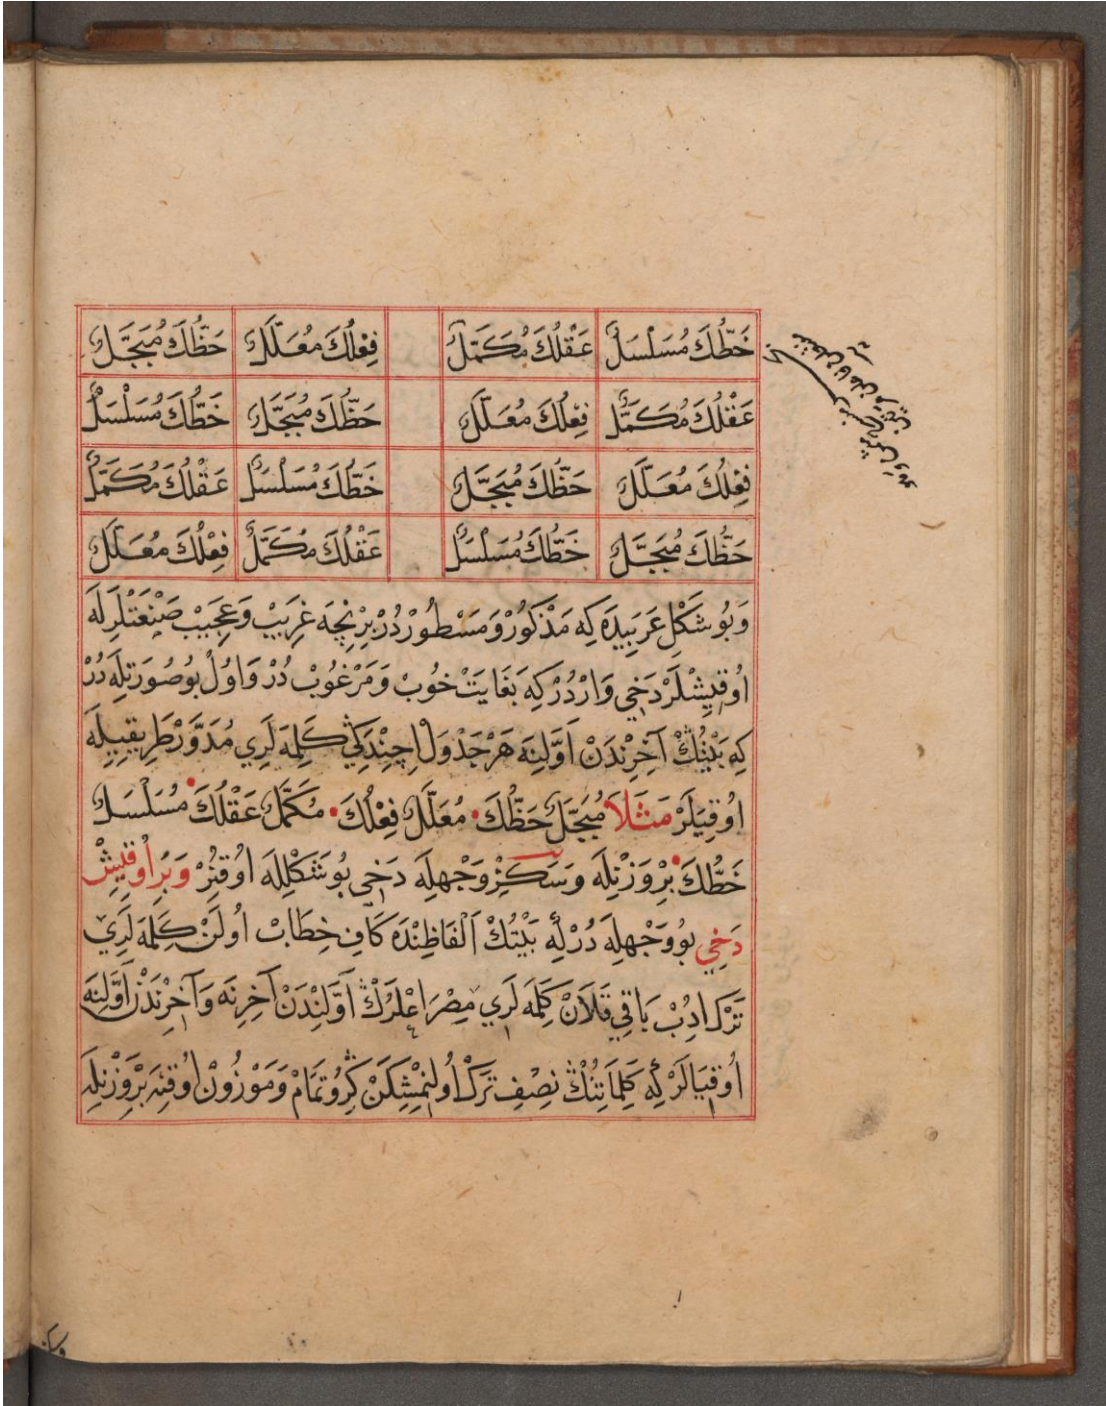 خَطُّكَ مُسَلْسَلٌ عَقْلُكَ مُكَمَّلٌ فِعْلُكَ مُعَلَّلٌ حَظُّكَ مُبَجَّلٌ
عَقْلُكَ مُكَمَّلٌ فِعْلُكَ مُعَلَّلٌ حَظُّكَ مُبَجَّلٌ خَطُّكَ مُسَلْسَلٌ
فِعْلُكَ مُعَلَّلٌ حَظُّكَ مُبَجَّلٌ خَطُّكَ مُسَلْسَلٌ عَقْلُكَ مُكَمَّلٌ
حَظُّكَ مُبَجَّلٌ خَطُّكَ مُسَلْسَلٌ عَقْلُكَ مُكَمَّلٌ فِعْلُكَ مُعَلَّلٌ
وَبُو شَكْلِ عَرَبِيدَه كِه مَذْكُورْ وَمَسْطُورْدُرْ بِرْنِچَه غَرِيبْ وَعَجِيبْ صَنْعَتْلَرِلَه
اُوقِيِشْلَرْ دَخِي وَارْدُرْ كِه بَغَايَتْ خُوبْ وَمَرْغُوبْ دُرْ وَاوُلْ بُو صُورَتِلَه دُرْ
كِه بَيْتُڭْ آخِرِنْدَنْ اَوَّلِنَه هَرْ جَدْوَلْ اِچِنْدَكِي كَلِمَه لَرِي مُدَوَّرْ طَرِيقِيلَه
اوُقِيَلَرْ مَثَلاَ مُبَجَّلٌ حَظُّكَ • مُعَلَّلٌ فِعْلُكَ • مُكَمَّلٌ عَقْلُكَ • مُسَلْسَلٌ
خَطُّكَ • بِرْ وَزْنِلَه وَسَكِزْ وَجْهِلَه دَخِي بُو شَكْلِلَه اوُقِنُرْ وَبِرْ اُوقِيِشْ
دَخِي بُو وَجْهِلَه دُرْ كِه بَيْتُڭْ اَلْفَاظِنْدَه كَافِ خِطَابْ اُولَنْ كَلِمَه لَرِي
تَرْكْ ادِبْ بَاقِي قَلاَنْ كَلِمَه لَرِي مِصْرَاعْلَرُڭْ اَوَّلِنْدَنْ آخِرِنَه وَآخِرِنْدَنْ اَوَّلِنَه
اُوقِيَالَرْ كِه كَلِمَاتُڭْ نِصْفِ تَرْكْ اُولِنْمِشِكَنْ كِرُو تَمَامْ وَمَوْزُونْ اوُقِنَه بِرْ وَزْنِلَه